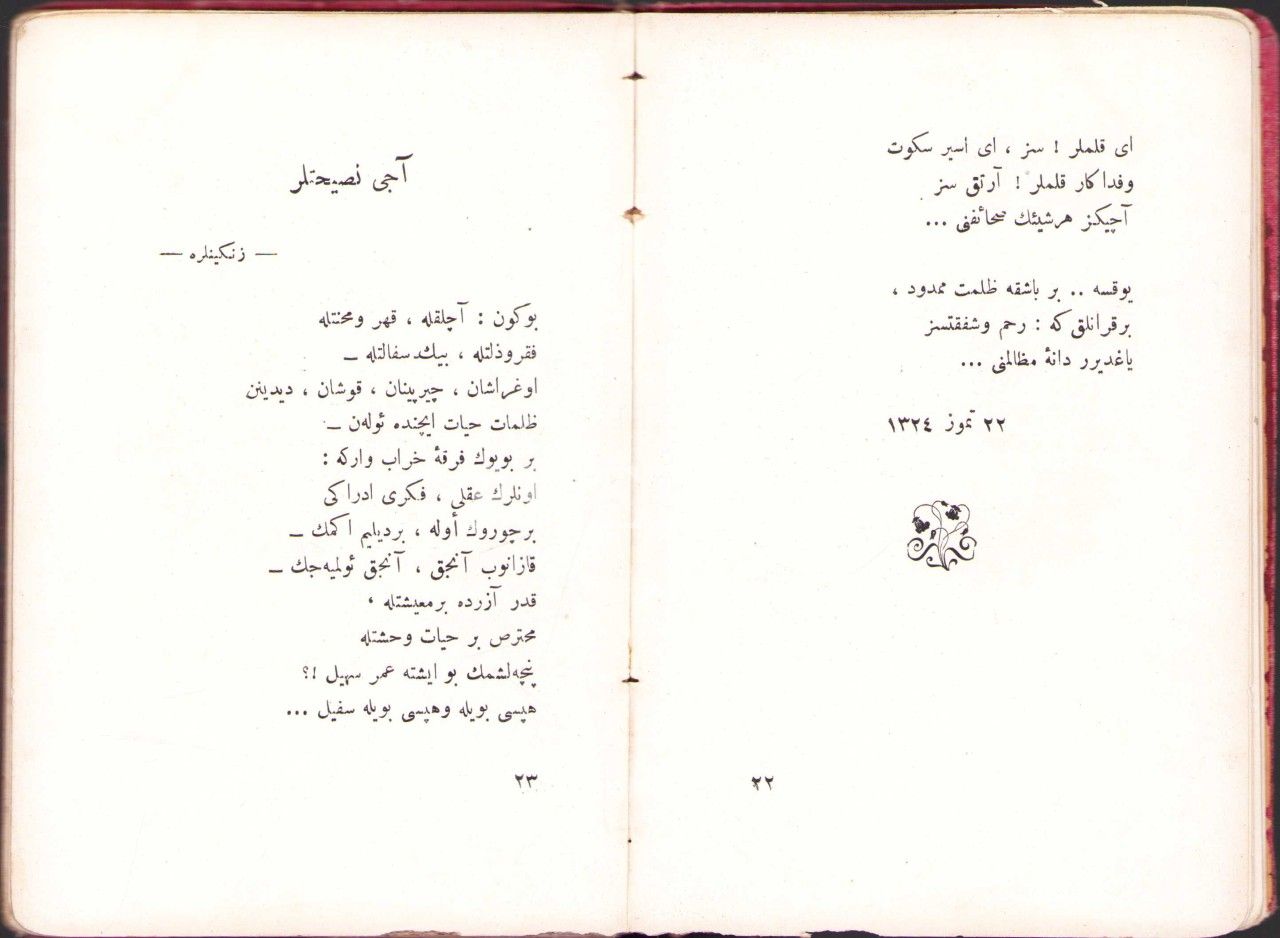 ای قلملر ! سز ، ای اسیر سکوت
وفداکار قلملر ! آرتق سز
آچیکز هرشیئك صحائفنی ...
یوقسه .. بر باشقه ظلمت ممدود ،
برقرانلق که : رحم وشفقتسز
یاغدیرر دانهٔ مظالمنی ...
٢٢ تموز ١٣٢٤
٢٢
آجی نصیحتلر
— زنکینلره —
بوکون : آچلقله ، قهر ومحنتله
فقروذلتله ، بیك سفالتله —
اوغراشان ، چیرپینان ، قوشان ، دیدینن
ظلمات حیات ایچنده ئولەن —
بر بویوك فرقهٔ خراب وارکه :
اونلرك عقلی ، فکری ادراکی
برچوروك أوله ، بردیلیم اکمك —
قازانوب آنجق ، آنجق ئولمیەجك —
قدر آزرده برمعیشتله ،
محترص بر حیات وحشتله
پنچەلشمك بو ایشته عمر سهیل !؟
هپسی بویله وهپسی بویله سفیل ...
٢٣